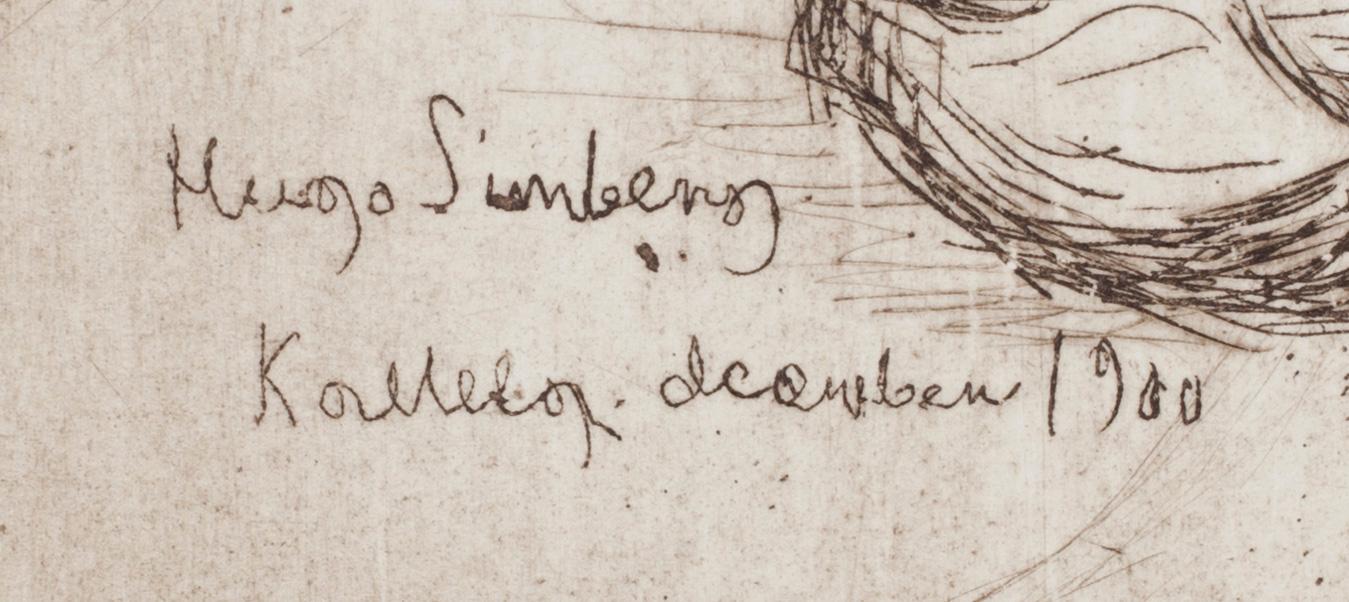 Hugo Simberg.
Kallela. december 1900